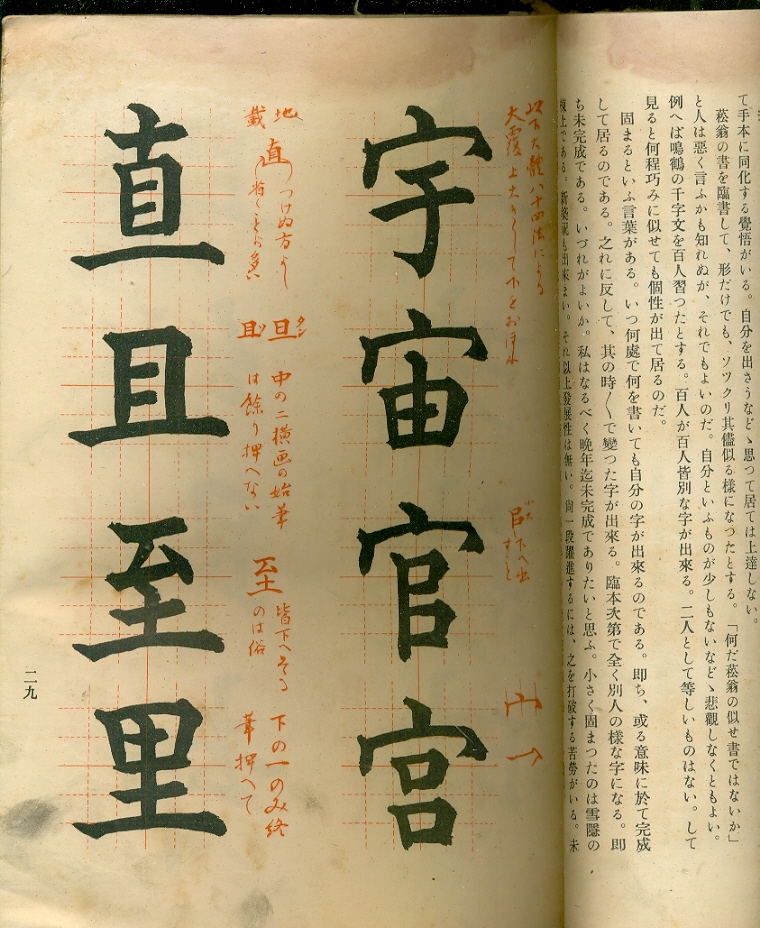 て手本に同化する覺悟がいる。自分を出さうなどゝ思つて居ては上達しない。
菘翁の書を臨書して、形だけでも、ソツクリ其儘似る樣になつたとする。「何だ菘翁の似せ書ではないか」
と人は惡く言ふかも知れぬが、それでもよいのだ。自分といふものが少しもないなどゝ悲觀しなくともよい。
例へば鳴鶴の千字文を百人習つたとする。百人が百人皆別な字が出來る。二人として等しいものはない。して
見ると何程巧みに似せても個性が出て居るのだ。
固まるといふ言葉がある。いつ何處で何を書いても自分の字が出來るのである。即ち、或る意味に於て完成
して居るのである。之れに反して、其の時〱で變つた字が出來る。臨本次第で全く別人の樣な字になる。即
ち未完成である。いづれがよいか。私はなるべく晩年迄未完成でありたいと思ふ。小さく固まつたのは雪隱の
である。新築祝も出來まい。それ以上發展性は無い。尙一段躍進するには、之を打破する苦勞がいる。未
以下大體八十四法による
大覆 上大きくして下をおほふ
下へ出
すこと
宇宙官宮
地
載
直
つけぬ方よし
旦 タン
且
中の二横画の始筆
は餘り押へない
至
皆下へそる
のは俗
下の一のみ終
筆押へて
直且至里
二九